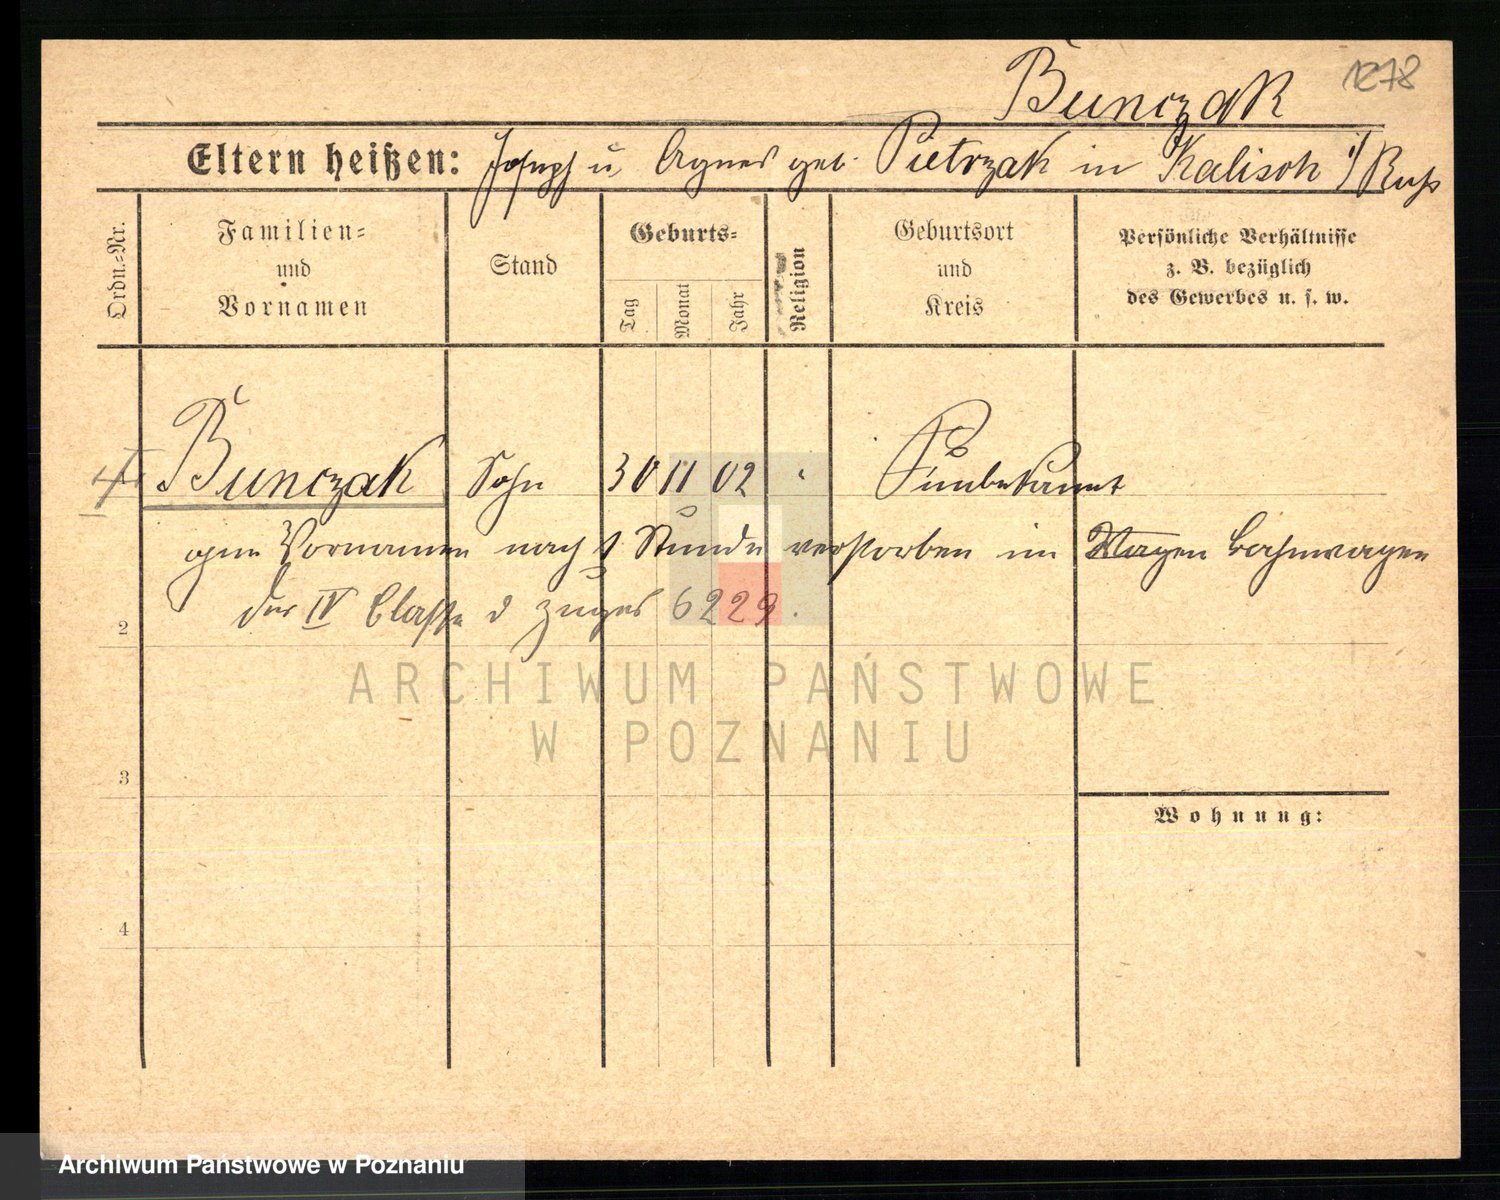 Bunczak 1278
Eltern heißen: Joseph u. Agnes geb. Pietrzak in Kalisch i/Ruß
Ordn.-Nr.
Familien-
und
Vornamen
Stand
Geburts-
Tag
Monat
Jahr
Religion
Geburtsort
und
Kreis
Persönliche Verhältnisse
z. B. bezüglich
des Gewerbes u. s. w.
Bunczak Sohn 30 11 02
ohne Vornamen nach 1 Stunde verstorben im Wagen Bahnwagen
der IV Classe d Zuges 6229.
2
ARCHIWUM PAŃSTWOWE
W POZNANIU
3
Wohnung:
4
Archiwum Państwowe w Poznaniu